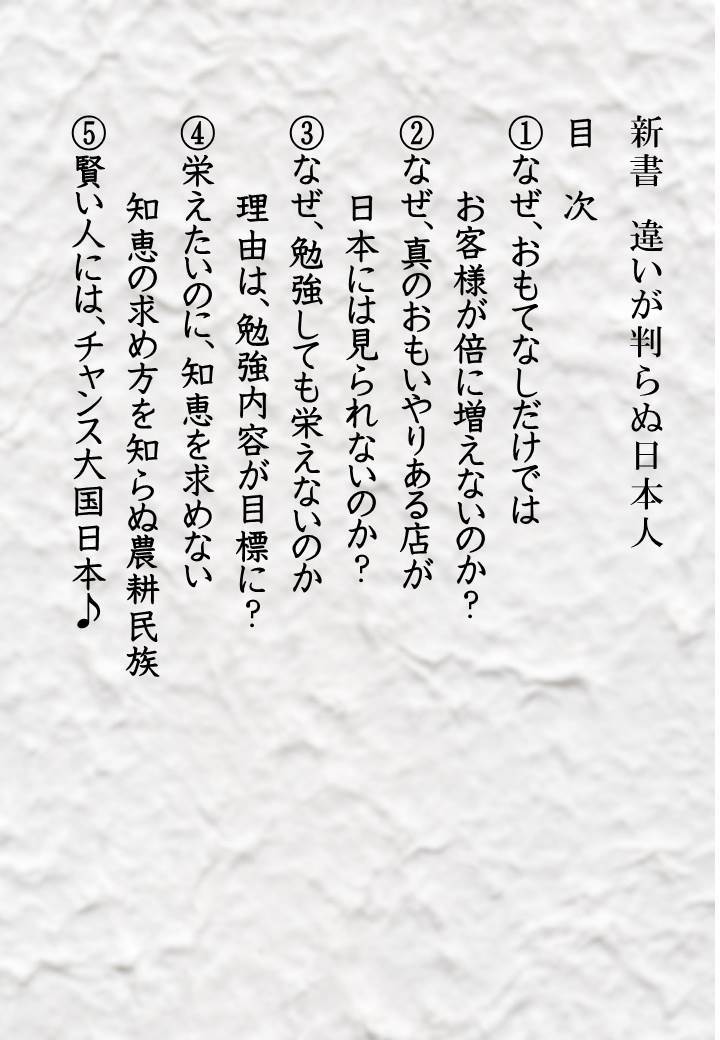 新書　違いが判らぬ日本人
目　次
①なぜ、おもてなしだけでは
お客様が倍に増えないのか？
②なぜ、真のおもいやりある店が
日本には見られないのか？
③なぜ、勉強しても栄えないのか
理由は、勉強内容が目標に？
④栄えたいのに、知恵を求めない
知恵の求め方を知らぬ農耕民族
⑤賢い人には、チャンス大国日本♪